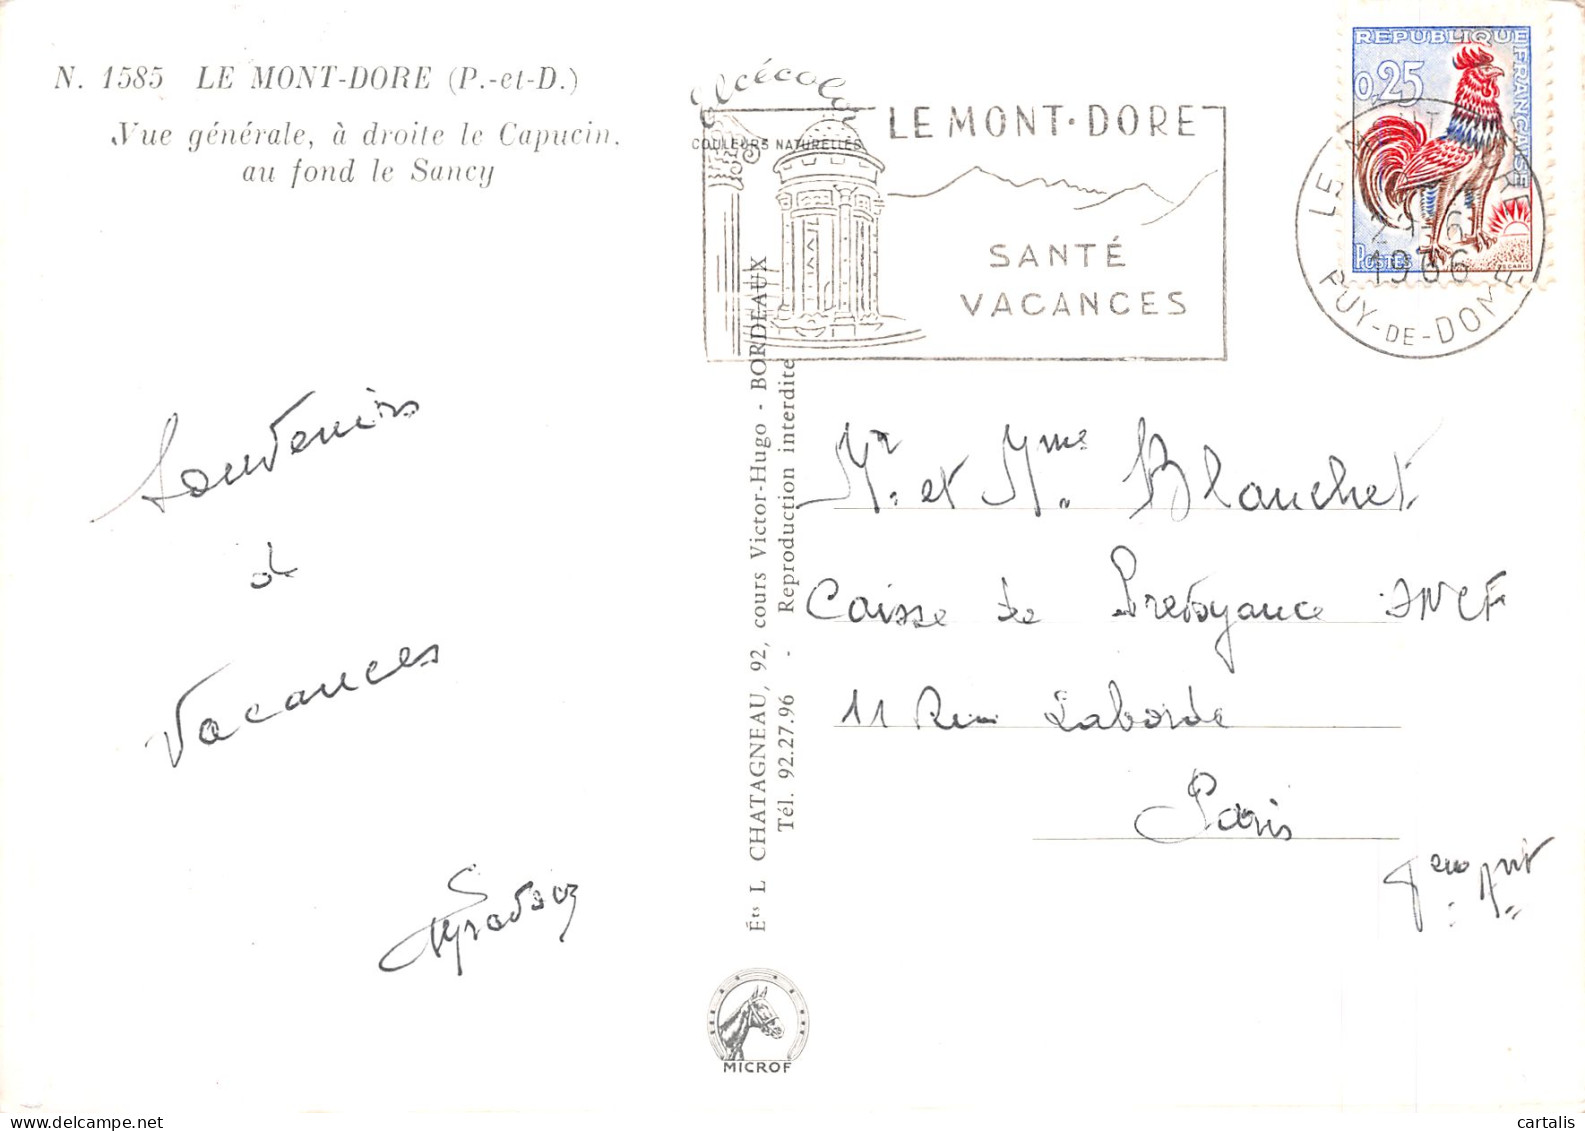 N. 1585 LE MONT-DORE (P.-et-D.)
Vue générale, à droite le Capucin,
au fond le Sancy
elcécolor
COULEURS NATURELLES
LE MONT-DORE
SANTÉ
VACANCES
REPUBLIQUE FRANÇAISE
0,25
POSTES
1966
PUY-DE-DOME
Souvenirs
de
Vacances
Éts L CHATAGNEAU, 92, cours Victor-Hugo - BORDEAUX
Tél. 92.27.96 - Reproduction interdite
Mr. et Mme. Blanchet
Caisse de Prévoyance SNCF
11 Rue Laborde
Paris
MICROF
cartalis